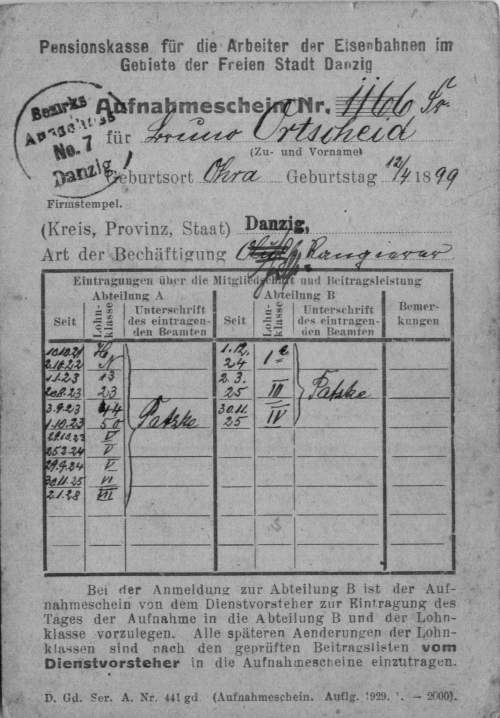 Pensionskasse für die Arbeiter der Eisenbahnen im
Gebiete der Freien Stadt Danzig
Bezirks
Ausschuss
No. 7
Danzig
Aufnahmeschein Nr. 1166
für Bruno Ortscheid
(Zu- und Vorname)
Geburtsort Ohra Geburtstag 12/4 1899
Firmstempel.
(Kreis, Provinz, Staat) Danzig,
Art der Bechäftigung Rangierer
Eintragungen über die Mitgliedschaft und Beitragsleistung
Abteilung A Abteilung B
Seit Lohnklasse Unterschrift des eintragenden Beamten Seit Lohnklasse Unterschrift des eintragenden Beamten Bemerkungen
10.10.21 1.12.
2.10.22 N 24 I
1.1.23 13 2.3.
20.8.23 23 25 III Patzke
3.9.23 44 30.11. IV
1.10.23 50 Patzke 25
V
25.2.24 V
29.9.24 V
30.11.25 VI
2.1.28 VII
Bei der Anmeldung zur Abteilung B ist der Auf-
nahmeschein von dem Dienstvorsteher zur Eintragung des
Tages der Aufnahme in die Abteilung B und der Lohn-
klasse vorzulegen. Alle späteren Aenderungen der Lohn-
klassen sind nach den geprüften Beitragslisten vom
Dienstvorsteher in die Aufnahmescheine einzutragen.
D. Gd. Ser. A. Nr. 441 gd (Aufnahmeschein. Auflg. 1929. - 2000).